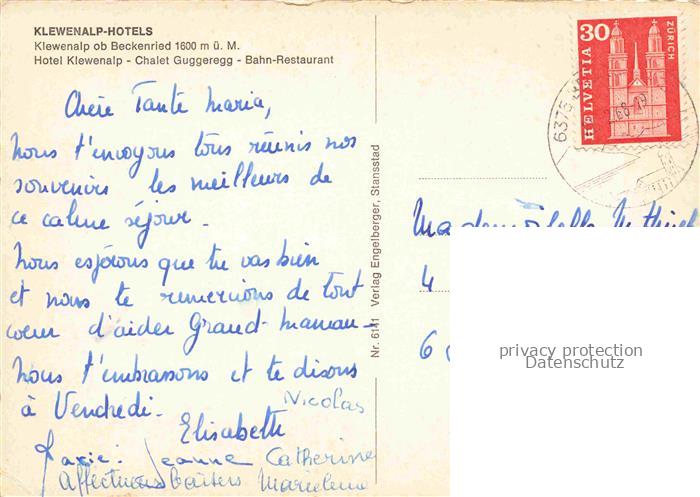 KLEWENALP-HOTELS
Klewenalp ob Beckenried 1600 m ü. M.
Hotel Klewenalp - Chalet Guggeregg - Bahn-Restaurant
Chère Tante Maria,
nous t'envoyons tous réunis nos
souvenirs les meilleurs de
ce calme séjour.
Nous espérons que tu vas bien
et nous te remercions de tout
coeur d'aider Grand-maman-
Nous t'embrassons et te disons
à Vendredi.
Nicolas
Elisabeth
Marie-Jeanne Catherine
Affectueux baisers Marielene
Nr. 6141 Verlag Engelberger, Stansstad
HELVETIA
30
ZÜRICH
6375
68-19
Mademoiselle
4
6
privacy protection
Datenschutz